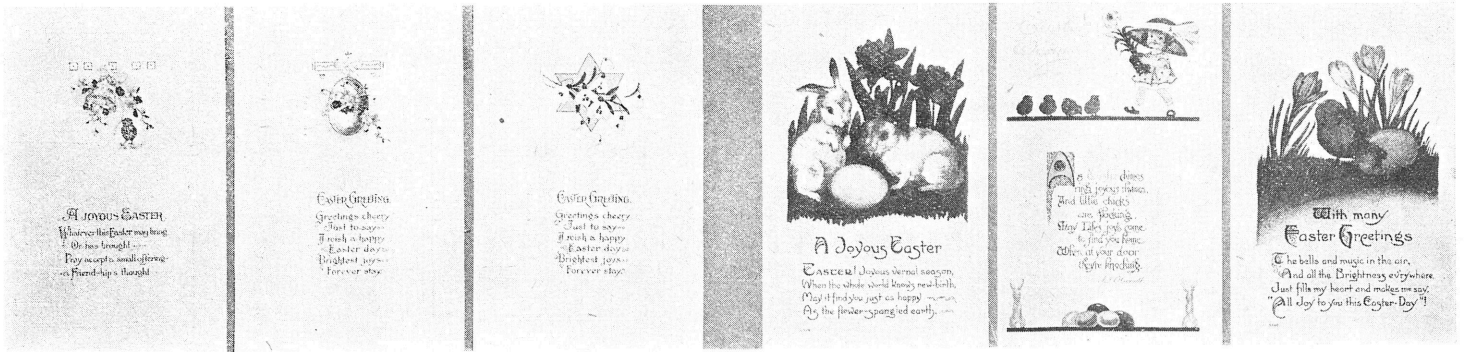 A JOYOUS EASTER
Whatever this Easter may bring
Or has brought
Pray accept a small offering
a Friendship's thought
EASTER GREETING.
Greetings cheery
Just to say
I wish a happy
Easter day
Brightest joys
Forever stay.
EASTER GREETING.
Greetings cheery
Just to say
I wish a happy
Easter day
Brightest joys
Forever stay.
A Joyous Easter
EASTER! Joyous vernal season,
When the whole world knows new-birth,
May it find you just as happy
As the flower-spangled earth.
As chimes
ring joyous
And little chicks
are
May Easter joys come
to find you
When at your door
they're knocking.
With many
Easter Greetings
The bells and music in the air,
And all the Brightness ev'rywhere,
Just fills my heart and makes me say:
"All Joy to you this Easter-Day"!